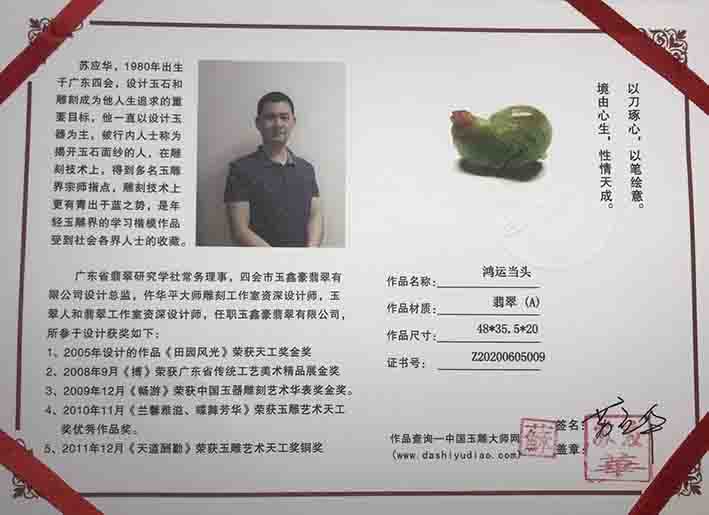 苏应华，1980年出生
于广东四会，设计玉石和
雕刻成为他人生追求的重
要目标，他一直以设计玉
器为主，被行内人士称为
揭开玉石面纱的人，在雕
刻技术上，得到多名玉雕
界宗师指点，雕刻技术上
更有青出于蓝之势，是年
轻玉雕界的学习楷模作品
受到社会各界人士的收藏。
广东省翡翠研究学社常务理事，四会市玉鑫豪翡翠有
限公司设计总监，仵华平大师雕刻工作室资深设计师，玉
翠人和翡翠工作室资深设计师，任职玉鑫豪翡翠有限公司，
所参于设计获奖如下：
1、2005年设计的作品《田园风光》荣获天工奖金奖
2、2008年9月《博》荣获广东省传统工艺美术精品展金奖
3、2009年12月《畅游》荣获中国玉器雕刻艺术华表奖金奖。
4、2010年11月《兰馨雅溢、蝶舞芳华》荣获玉雕艺术天工
奖优秀作品奖。
5、2011年12月《天道酬勤》荣获玉雕艺术天工奖铜奖
以刀琢心，以笔绘意。
境由心生，性情天成。
作品名称： 鸿运当头
作品材质： 翡翠 (A)
作品尺寸： 48*35.5*20
证书号： Z20200605009
签名： 苏应华
作品查询—中国玉雕大师网
盖章：
(www.dashiyudiao.com)
蘇
華